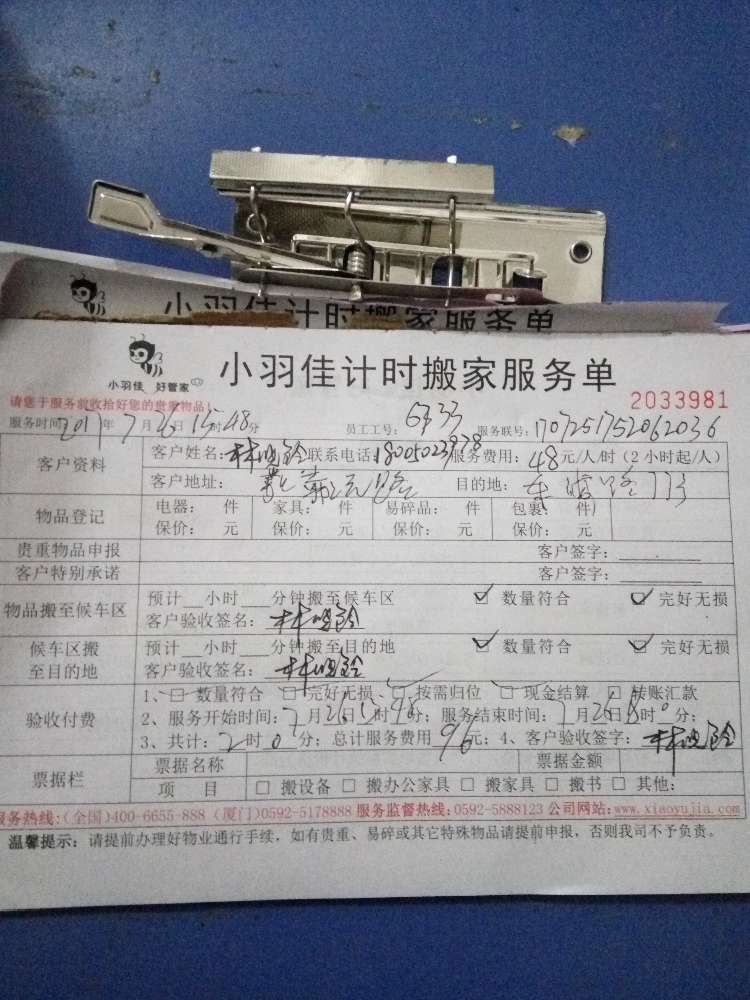 小羽佳计时搬家服务单
小羽佳 好管家
小羽佳计时搬家服务单
2033981
请您于服务前收拾好您的贵重物品!
服务时间 2017年7月26日15时48分 员工工号: 6733 服务联号: 1707251752062036
客户资料 客户姓名: 林 联系电话: 服务费用: 48元/人/时(2小时起/人)
客户地址: 路 目的地: 路
物品登记 电器: 件 家具: 件 易碎品: 件 包裹: 件
保价: 元 保价: 元 保价: 元 保价: 元
贵重物品申报 客户签字:
客户特别承诺 客户签字:
物品搬至候车区 预计__小时__分钟搬至候车区 ☑ 数量符合 ☑ 完好无损
客户验收签名: 林
候车区搬至目的地 预计__小时__分钟搬至目的地 ☑ 数量符合 ☑ 完好无损
客户验收签名: 林
验收付费 1、□ 数量符合 □ 完好无损 □ 按需归位 □ 现金结算 □ 转账汇款
2、服务开始时间: 7月26日15时48分; 服务结束时间: 7月26日 时0分;
3、共计: 2时0分; 总计服务费用 96元; 4、客户验收签字: 林
票据栏 票据名称 票据金额
项 目 □ 搬设备 □ 搬办公家具 □ 搬家具 □ 搬书 □ 其他:
服务热线:(全国)400-6655-888 (厦门)0592-5178888 服务监督热线:0592-5888123 公司网站:www.xiaoyujia.com
温馨提示: 请提前办理好物业通行手续, 如有贵重、易碎或其它特殊物品请提前申报, 否则我司不予负责。